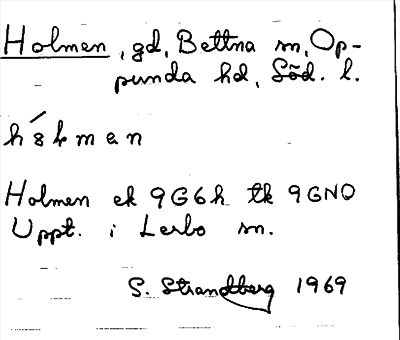 Holmen, gd, Bettna sn, Op-
punda hd, Söd. l.
hólmen
Holmen ek 9G6h tk 9GNO
Uppt. i Lerbo sn.
S. Strandberg 1969